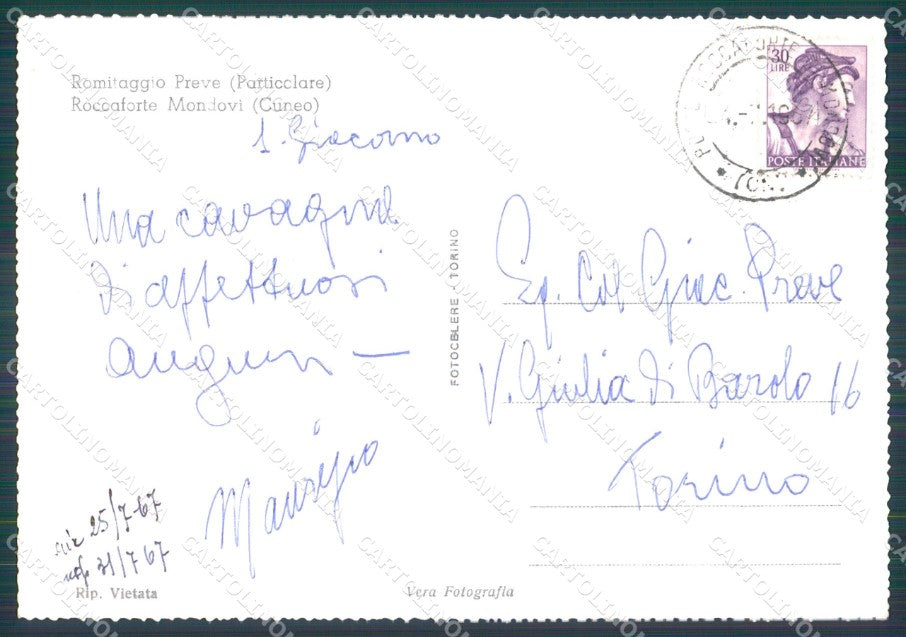 Romitaggio Preve (Particolare)
Roccaforte Mondovi (Cuneo)
S. Giacomo
Una cavagna
di affettuosi
auguri —
Maurizio
25/7-67
31/7 67
Rip. Vietata
Vera Fotografia
FOTOCELERE - TORINO
30
LIRE
POSTE ITALIANE
ROCCAFORTE MONDOVI
Eg. Col Giac. Preve
V. Giulia di Barolo 16
Torino
CARTOLINOMANIA